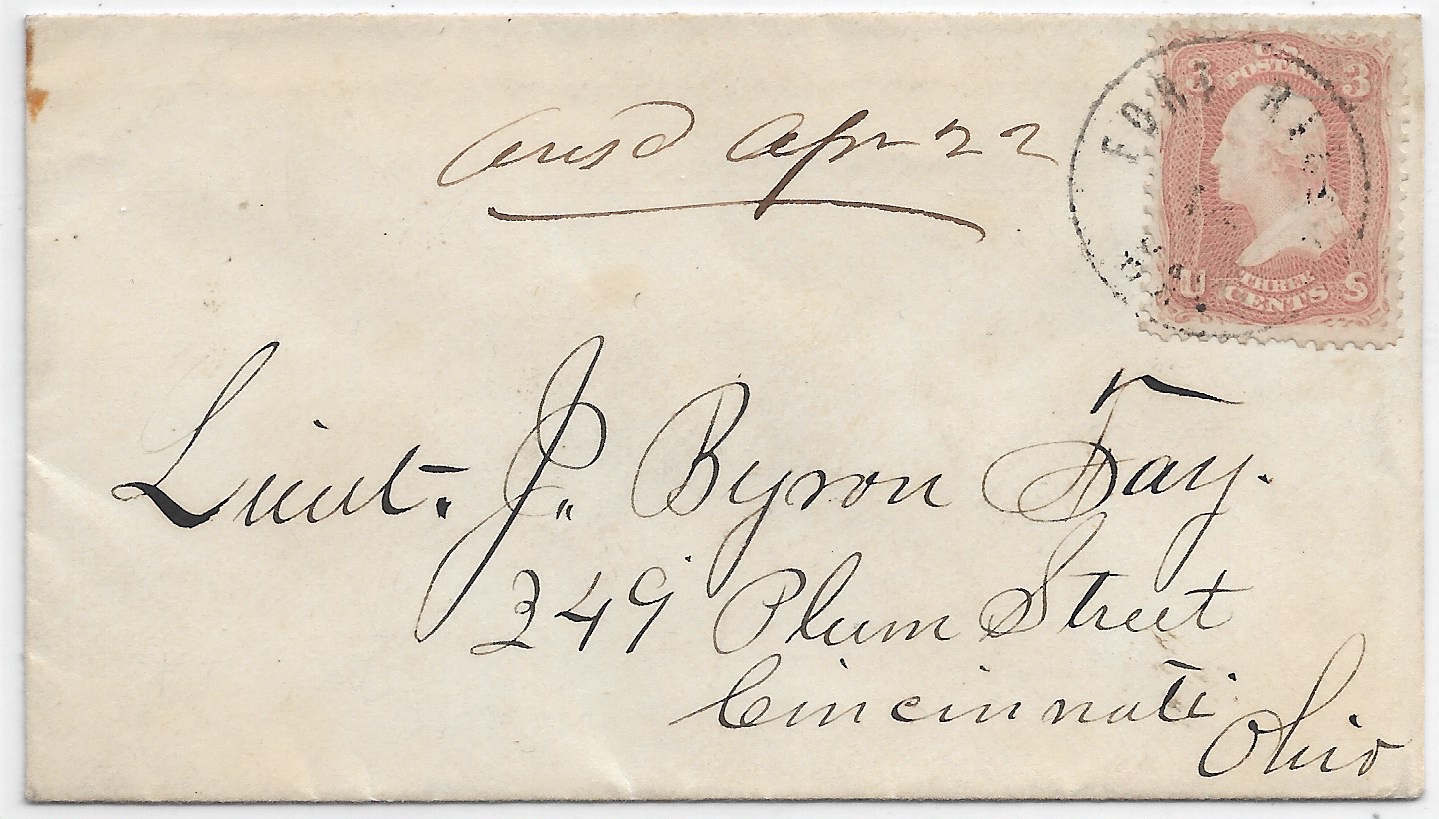 ansd Apr 22
U.S.
POSTAGE
3 3
THREE
U CENTS S
Lieut. J. Byron Fay.
349 Plum Street
Cincinnati
Ohio